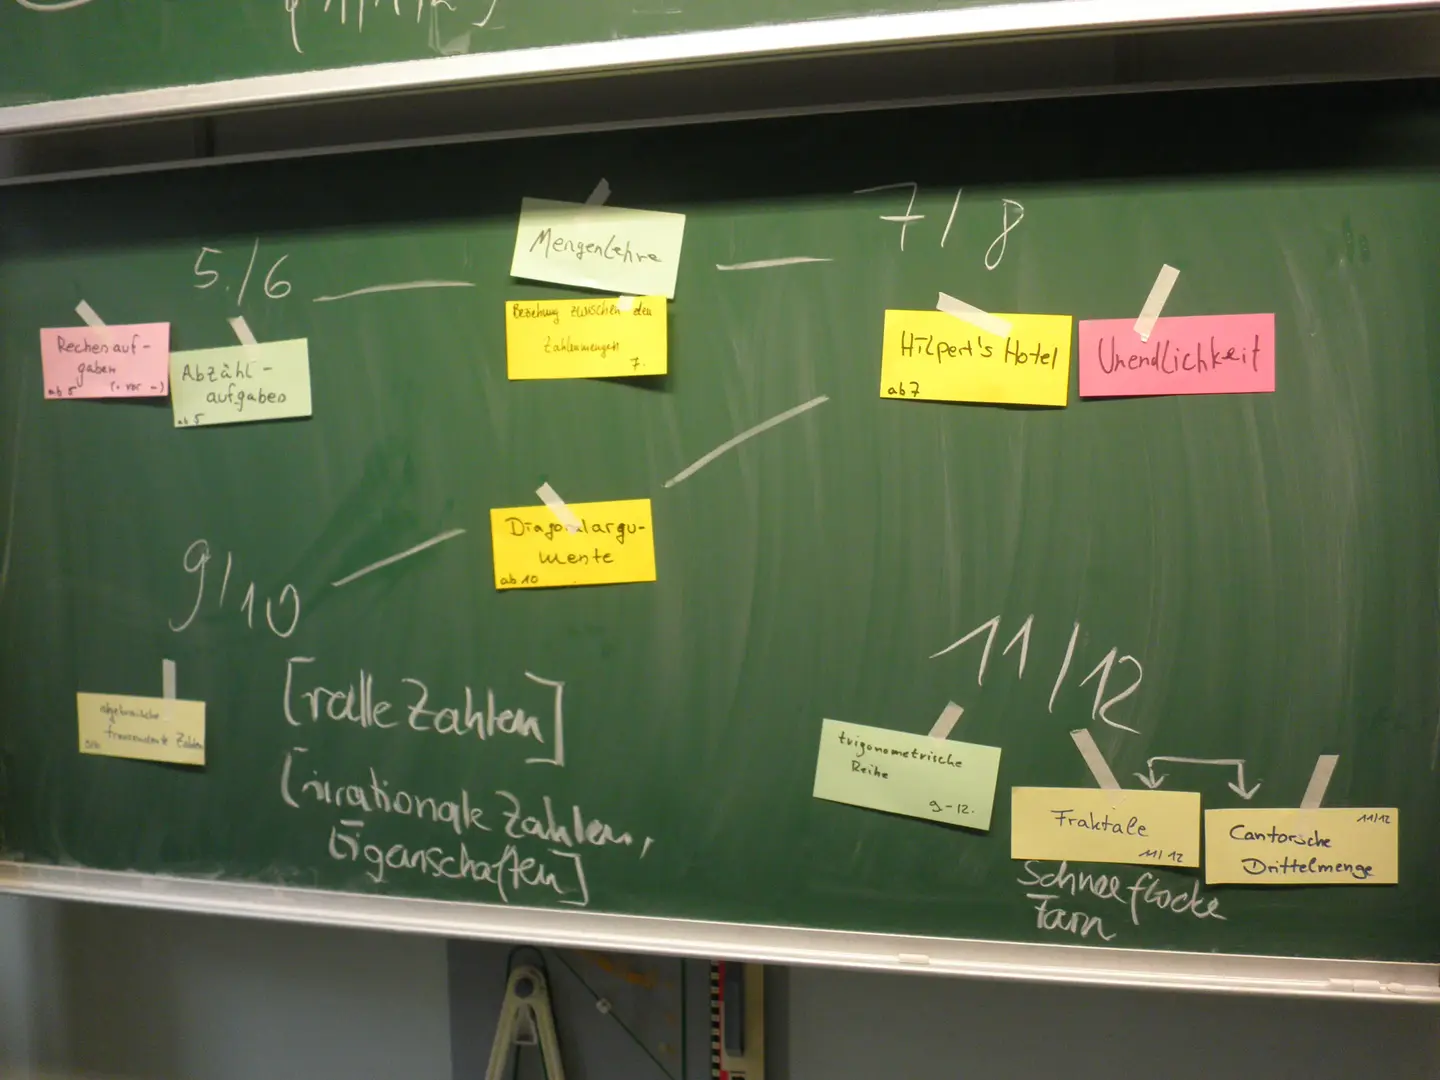 5./6
Mengenlehre
7/8
Rechenauf-
gaben
ab 5 (· vor -)
Abzähl-
aufgaben
ab 5
Beziehung zwischen den
Zahlenmengen
7.
Hilpert's Hotel
ab 7
Unendlichkeit
9/10
Diagonalargu-
mente
ab 10
11/12
algebraische
transzendente Zahlen
9/10
[reelle Zahlen]
[irrationale Zahlen,
Eigenschaften]
trigonometrische
Reihe
9-12.
Fraktale
11/12
Schneeflocke
Farn
11/12
Cantorsche
Drittelmenge